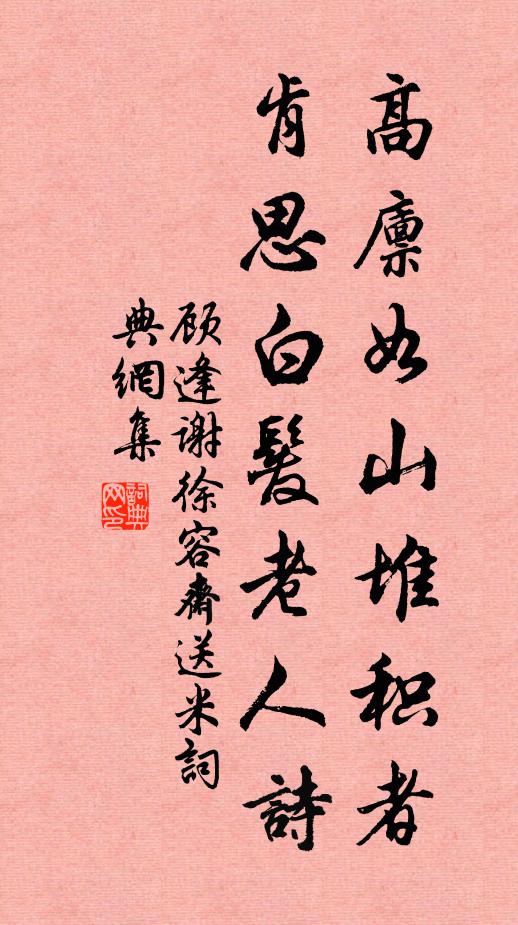 高廪如山堆积者
肯思白髮老人詩
顾逢谢徐容齋送米詞
典網集
詞典网印